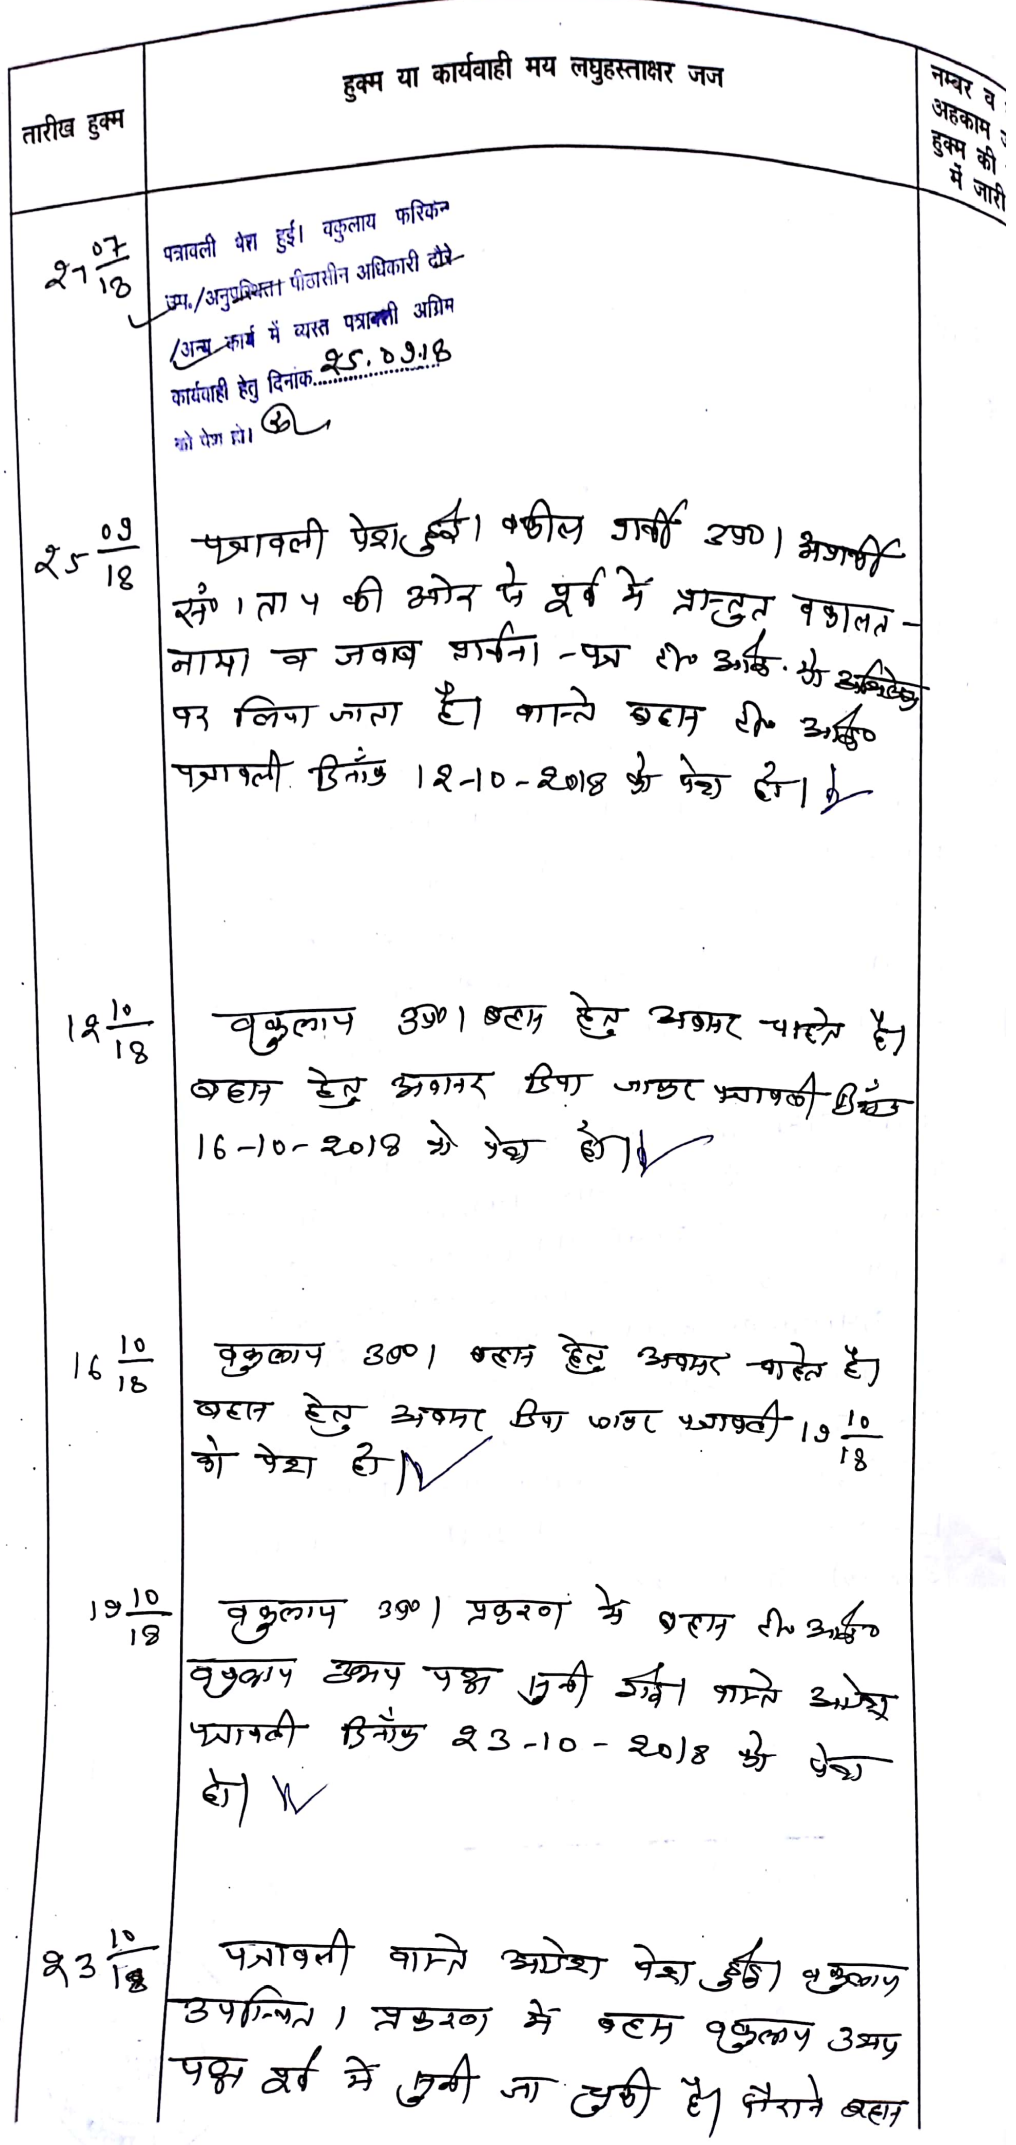 तारीख हुक्म
हुक्म या कार्यवाही मय लघुहस्ताक्षर जज
नम्बर व
अहकाम
हुक्म की
में जारी
27 07/18
पत्रावली पेश हुई। वकुलाय फरिकन
उप./अनुपस्थित। पीठासीन अधिकारी दौरे
/अन्य कार्य में व्यस्त पत्रावली अग्रिम
कार्यवाही हेतु दिनांक 25.09.18
को पेश हो।
25 09/18
पत्रावली पेश हुई। वकील प्रार्थी उप०। अप्रार्थी
सं० 1 ता 4 की ओर से पूर्व में प्रस्तुत वकालत-
नामा व जवाब प्रार्थना-पत्र टी० आई. को अभिलेख
पर लिया जाता है। वास्ते बहस टी० आई०
पत्रावली दिनाँक 12-10-2018 को पेश हो।
12 10/18
वकुलाय उप०। बहस हेतु अवसर चाहते है।
बहस हेतु अवसर दिया जाकर पत्रावली दिनाँक
16-10-2018 को पेश हो।
16 10/18
वकुलाय उप०। बहस हेतु अवसर चाहते है।
बहस हेतु अवसर दिया जाकर पत्रावली 19 10/18
को पेश हो।
19 10/18
वकुलाय उप०। प्रकरण में बहस टी० आई०
वकुलाय उभय पक्ष सुनी गई। वास्ते आदेश
पत्रावली दिनाँक 23-10-2018 को पेश
हो।
23 10/18
पत्रावली वास्ते आदेश पेश हुई। वकुलाय
उपस्थित। प्रकरण में बहस वकुलाय उभय
पक्ष पूर्व में सुनी जा चुकी है। दौराने बहस